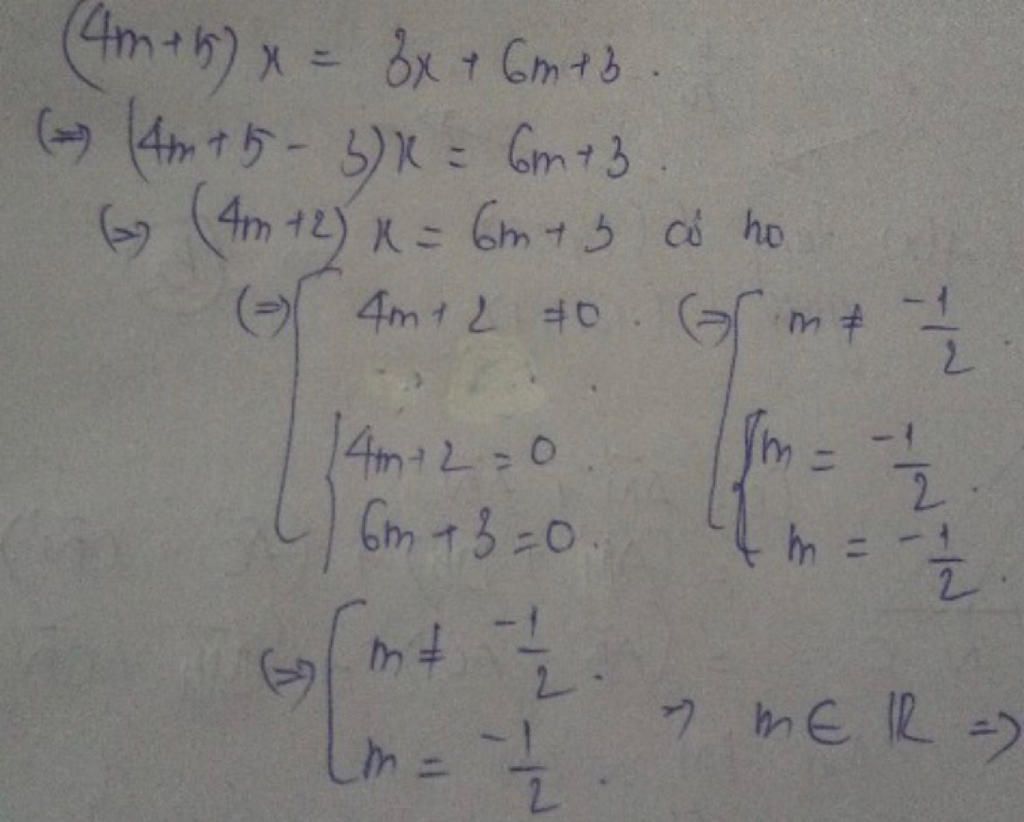 (4m+5) x = 3x + 6m+3.
(=> (4m+5-3)x = 6m+3.
(=> (4m+2) x = 6m+3 có no
(=> [ 4m+2 ≠0. (=> [ m ≠ -1/2.
{ 4m+2 = 0. { m = -1/2.
6m+3=0. m = -1/2.
(=> [ m ≠ -1/2.
m = -1/2. => m ∈ ℝ =>